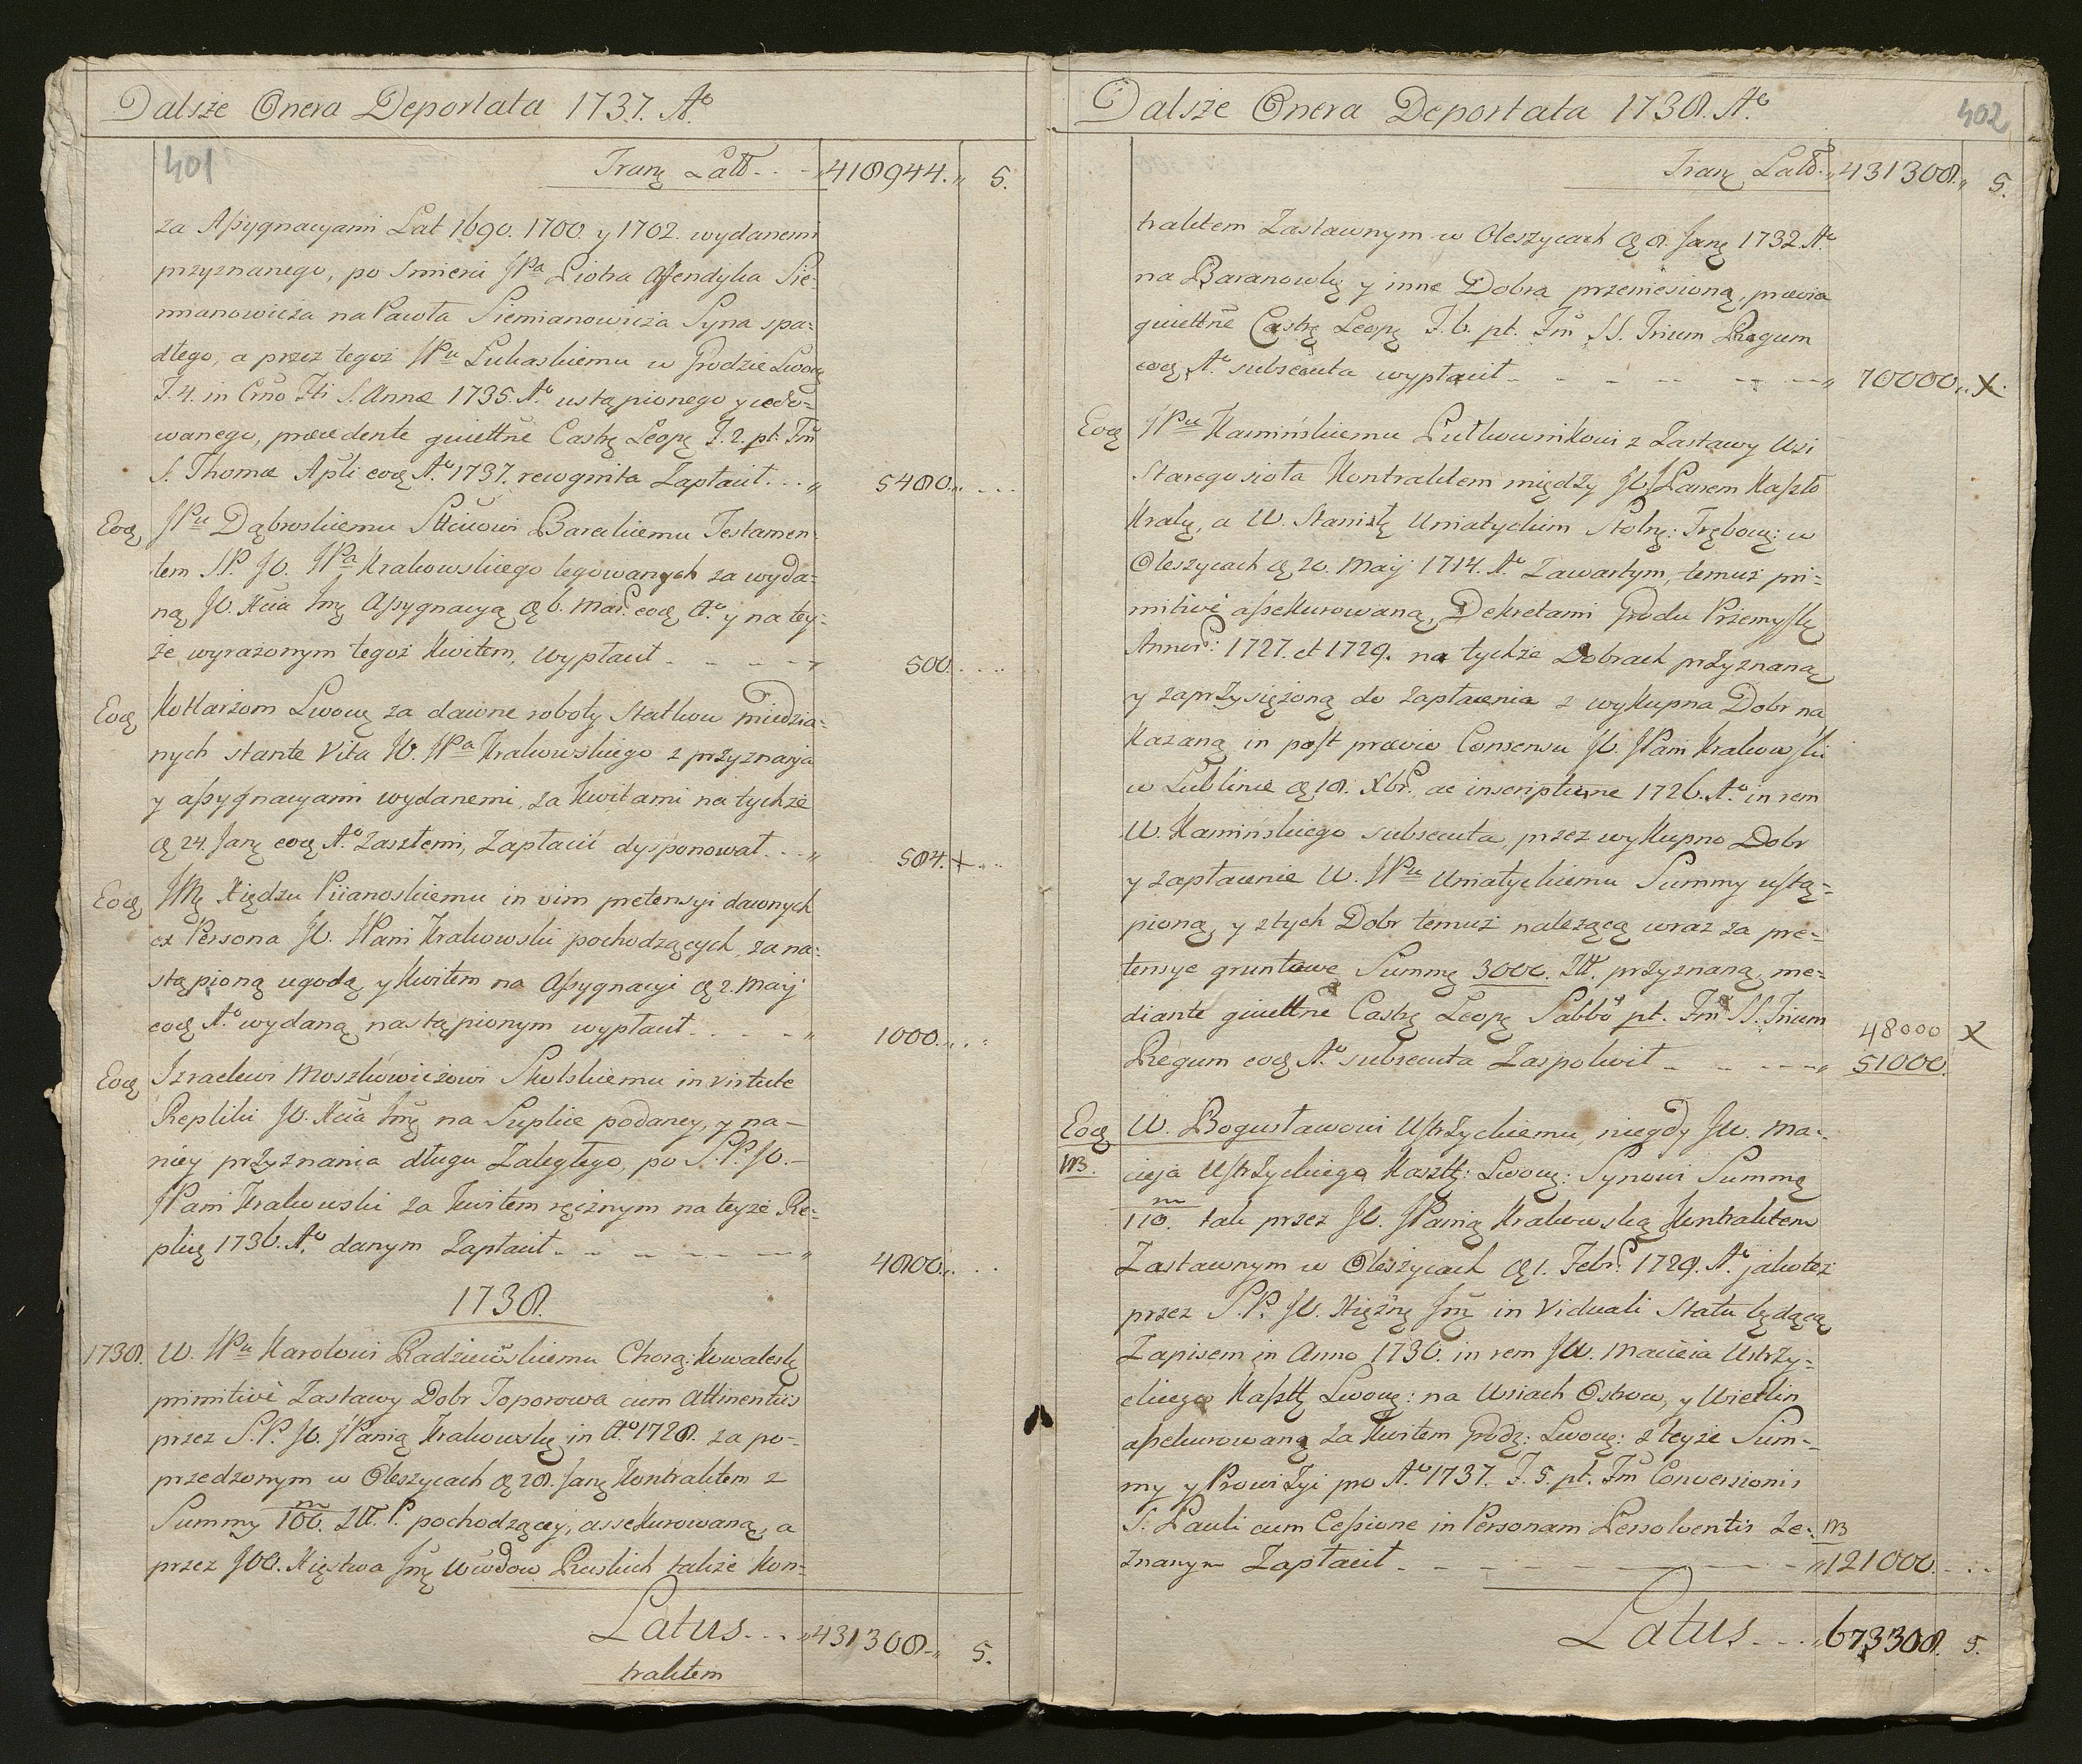 Dalsze Onera Deportata 1737. Aº
401
Tranʒ Latº. . . 418944. „ 5.
za Assygnacyami Lat 1690. 1700. y 1702. wydanemi
przyznanego, po Smierci JPa Piotra Affendyka Sie=
mianowicza na Pawła Siemianowicza Syna spa=
dłego, a przez tegoż JPu Lukaskiemu w Grodzie Lwow
F. 4. in Crño Fti S. Annæ 1735. Aº ustąpionego y cedo=
wanego, præcedente quiettñe Castrʒ Leopʒ F. 2. pt. Fm̃
S. Thomæ Apli eodʒ Aº 1737. recognita Zapłacił. . . „ 5480. . . . .
Eodʒ JPu Dąbroskiemu Barckiemu Testamen=
tem SP. JW. JPa Krakowskiego legowanych za wyda=
ną JW. Xcia Jmʒ Assygnacyą dʒ 6. Mar. eodʒ Aº y na tey=
że wyrażonym tegoż Kwitem, wypłacił - - - - - „ 500. . . .
Eodʒ Kotlarzom Lwowʒ za dawne roboty Statkow miedzia=
nych stante Vita JW. JPa Krakowskiego z przyznaniа
y assygnacyami wydanemi, za Kwitami na tychże
dʒ 24. Janʒ eodʒ Aº Zaszłemi, Zapłacić dysponował. . . „ 584. + . .
Eodʒ JMʒ Xiędzu Piianoskiemu in vim pretensyi dawnych
ex Persona JW. JPani Krakowski pochodzących, za na=
stąpioną ugodą y Kwitem na Assygnacyi dʒ 2. Maij
eodʒ Aº wydaną nastąpionym wypłacił. . . - - „ 1000. . . .
Eodʒ Izraelowi Moszkowiczowi Skolskiemu in virtute
Repliki JW. Xcia Jmʒ na Suplice podaney, y na-
niey przyznania długu Zaległego, po S. P. JW.-
JPani Krakowski za Kwitem ręcznym na teyże Re=
plicʒ 1736. Aº danym Zapłacił - - - - - - „ 4800. . . .
1738.
1738. W. JPu Karolowi Radziewskiemu Chorą: Kowalesʒ
primitive Zastawy Dobr Toporowa cum Attinentiis
przez S. P. JW. JPanią Krakowskʒ in Aº 1728. za po=
przedzonym w Oleszycach dʒ 28. Janʒ Kontraktem z
Summy 100.m Złł. P. pochodzącey, assekurowaną, a
przez JOO. Xięstwa Jmʒ Wdow Ruskich także Kon=
Latus. . . „431308. „ 5.
traktem
Dalsze Onera Deportata 1738. Aº
402
Tranʒ Latº. „431308. „ 5.
traktem Zastawnym w Oleszycach dʒ 8. Janʒ 1732. Aº
na Baranowkʒ y inne Dobra przeniesioną, prævia
quiettñe Castrʒ Leopʒ F. 6. pt. Fm̃ SS. Trium Regum
eodʒ Aº subsecuta wypłacił - - - - - - „ 70000. „ X.
Eodʒ JPu Kamińskiemu Pułkownikowi z Zastawy Wsi
Starego siola Kontraktem między JW JPanem Kaszto
Krakʒ, a W. Stanisłʒ Uniatyckim Stolnʒ: Trębowʒ: w
Oleszycach dʒ 20. Maij 1714. Aº Zawartym, temuż pri=
mitive assekurowaną, Dekretami Grodu Przemyslʒ
Annor: 1727. et 1729. na tychże Dobrach przyznaną
y zaprzysiężoną do zapłacenia z wykupna Dobr na
kazaną in post prævio Consensu JW. JPani Krakowski
w Lublinie dʒ 18. Xbr. ac inscriptione 1726. Aº in rem
W. Kamińskiego subsecuta, przez wykupno Dobr
y zapłacenie W. JPu Uniatyckiemu Summy ustą=
pioną, y z tych Dobr temuż należącą wraz za pre=
tensye gruntowe Summę 3000. Złł. przyznaną, me=
diante quiettñe Castrʒ Leopʒ Sabbº pt. Fm̃ SS. Trium 48000 X
Regum eodʒ Aº subsecuta Zaspokoił - - - - - „ 51000.
Eodʒ W. Bogusławowi Ustrzyckiemu, niegdy JW. Ma=
NB. cieja Ustrzyckiego Kasztł: Lwowʒ: Synowi Summę
110.m tak przez JW. JPanią Krakowską Kontraktem
Zastawnym w Oleszycach dʒ 1. Febr. 1729. Aº jakoteż
przez S. P. JW. Xiężnę Jmʒ in Viduali Statu będącą
Zapisem in Anno 1730. in rem JW. Macieia Ustrzy=
ckiego Kasztł Lwowʒ: na Wsiach Ostrow, y Wietlin
assekurowaną za Kwitem Grodz: Lwowʒ: z teyże Sum=
my y Prowizyi pro Aº 1737. F. 5. pt. Fm̃ Conversionis
S. Pauli cum Cessione in Personam Persolventis Ze= NB
znanym Zapłacił - - - - - - - „ 121000. . . .
Latus. . . . „ 673308. 5.